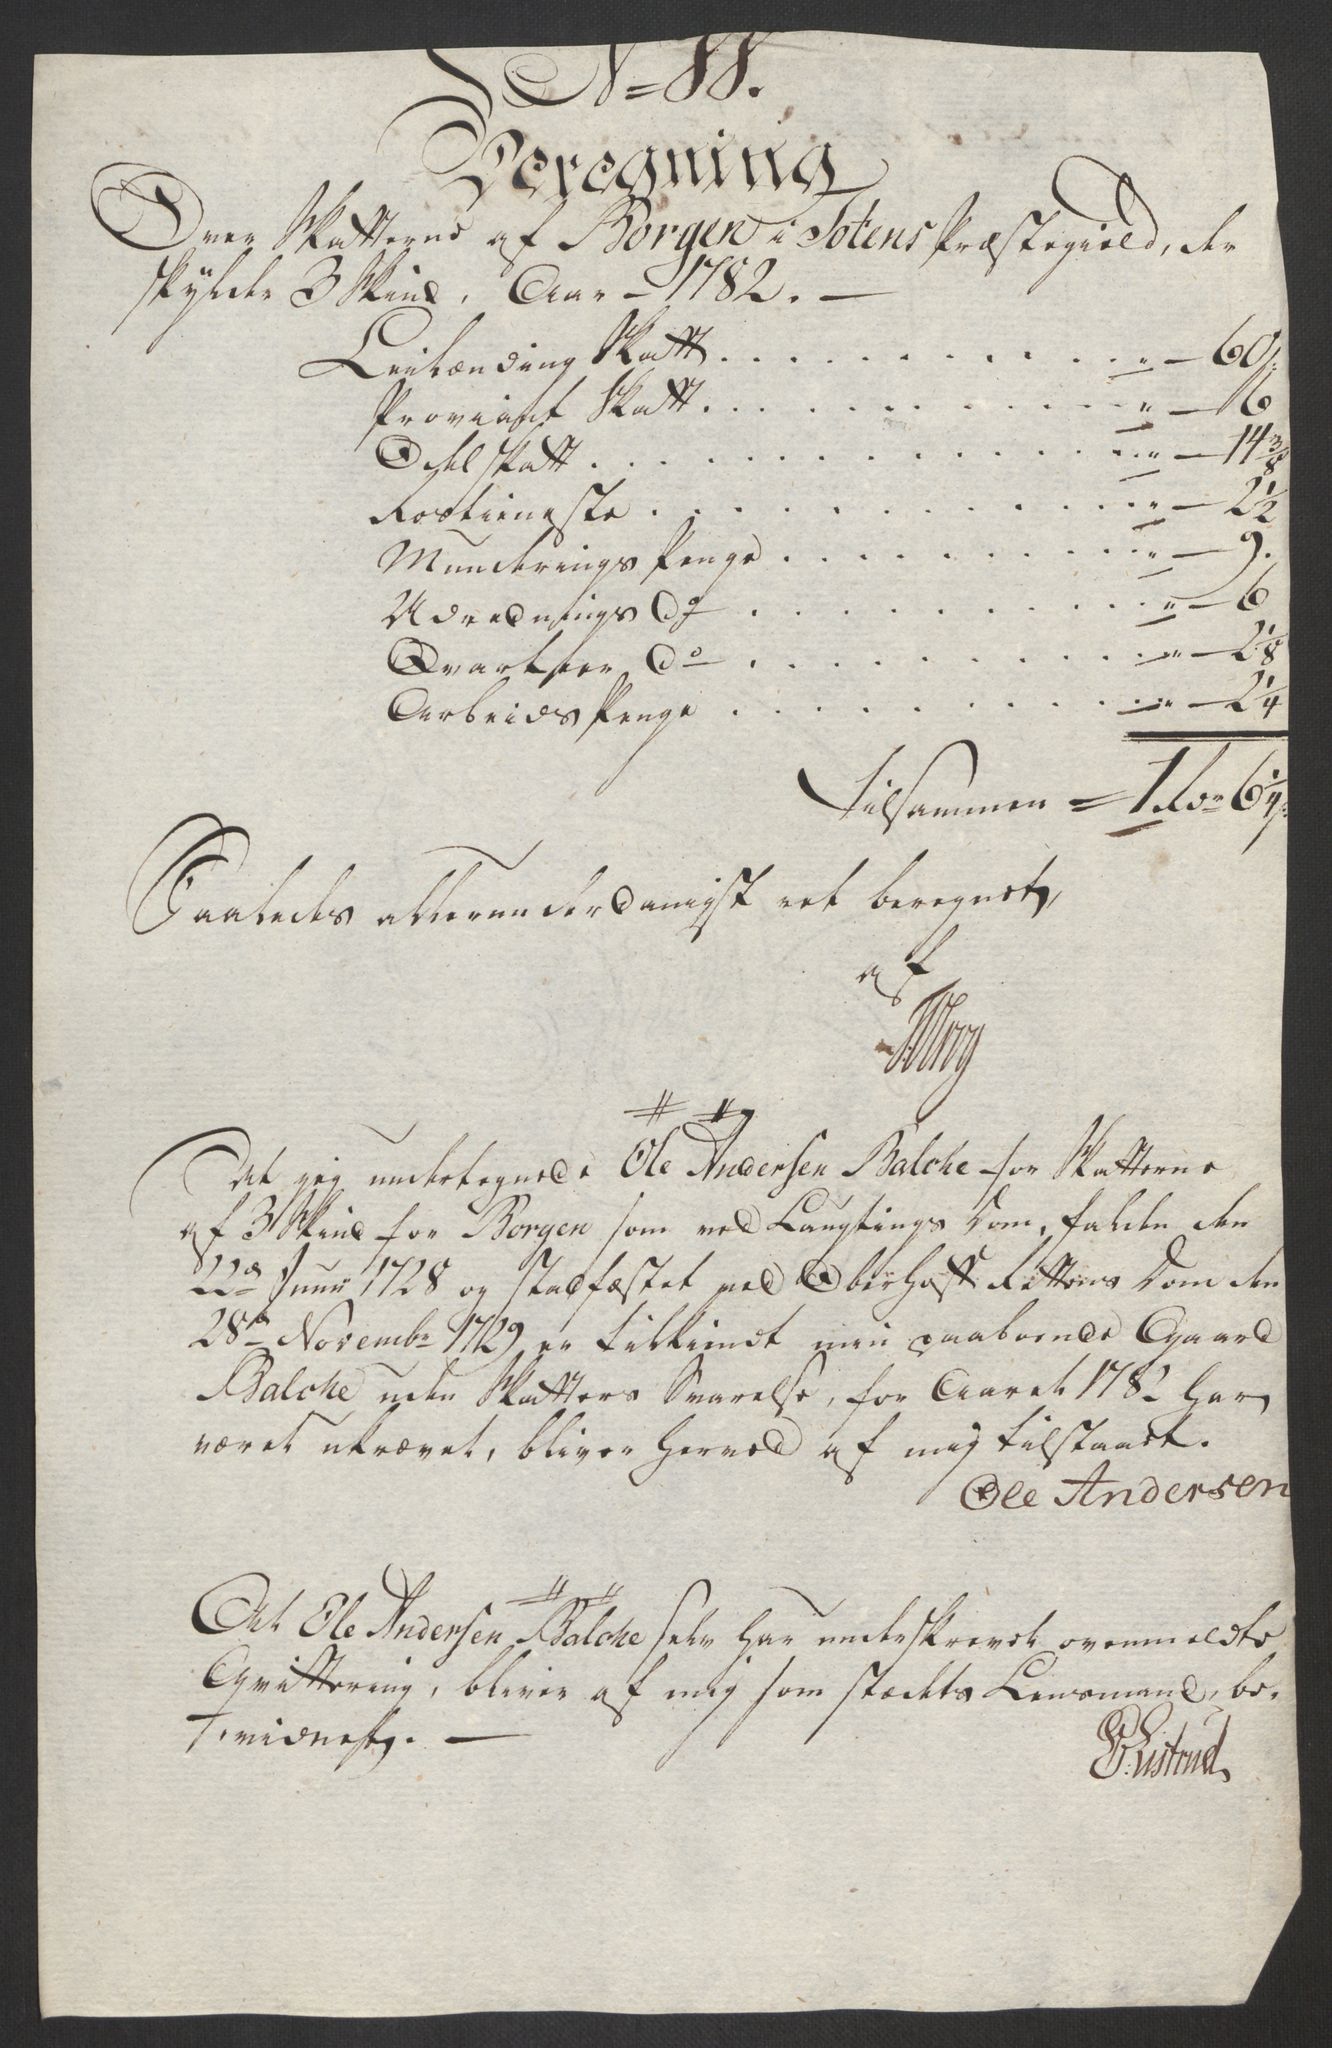 N= SS.
Beregning
Over Skatterne af Borgen i Totens Præstegield, der
skylder 3 Skind, Aar - 1782. —
Leilænding Skatt . . . . " — 60 s:
Proviant Skatt . . . . " — 6
Odelskatt . . . . " — 14 3/8
Rostieneste . . . . " — 2 1/2
Munderings Penge . . . . " — 9.
Udrednings Do . . . . " — 6
Qvarteer Do . . . . " — 2 1/8
Arbeids Penge . . . . " — 2 1/4
Tilsammen = 1 Rdr 6 1/4 s:
Saaledes allerunderdanigst ret beregnet,
af
At jeg undertegnede Ole Andersen Balche for Skatterne
af 3 Skind for Borgen som ved Laugtings Dom, falden den
22de Junii 1728 og stadfæstet ved OberHoff Rettens Dom den
28de Novembr 1729 er tilkiendt min paaboende Gaard
Balche uden Skatters Svarelse, for Aaret 1782 har
været ukrævet, bliver herved af mig tilstaaet.
Ole Andersen
At Ole Andersen Balche selv har underskrevet ovenmeldte
Qvittering, bliver af mig som stædets Lensmand, be-
vidnet. —